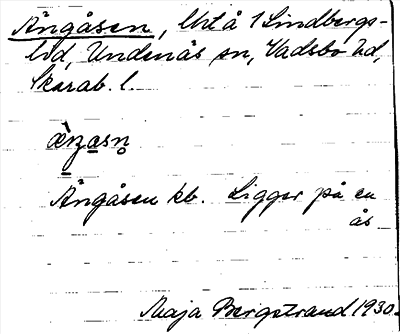 Ängåsen, Urtå 1 Lindbergs-
lid, Undenäs sn, Vadsbo hd,
Skarab. l.
Ängåsen kb. Ligger på en
ås
Maja Bergstrand 1930.